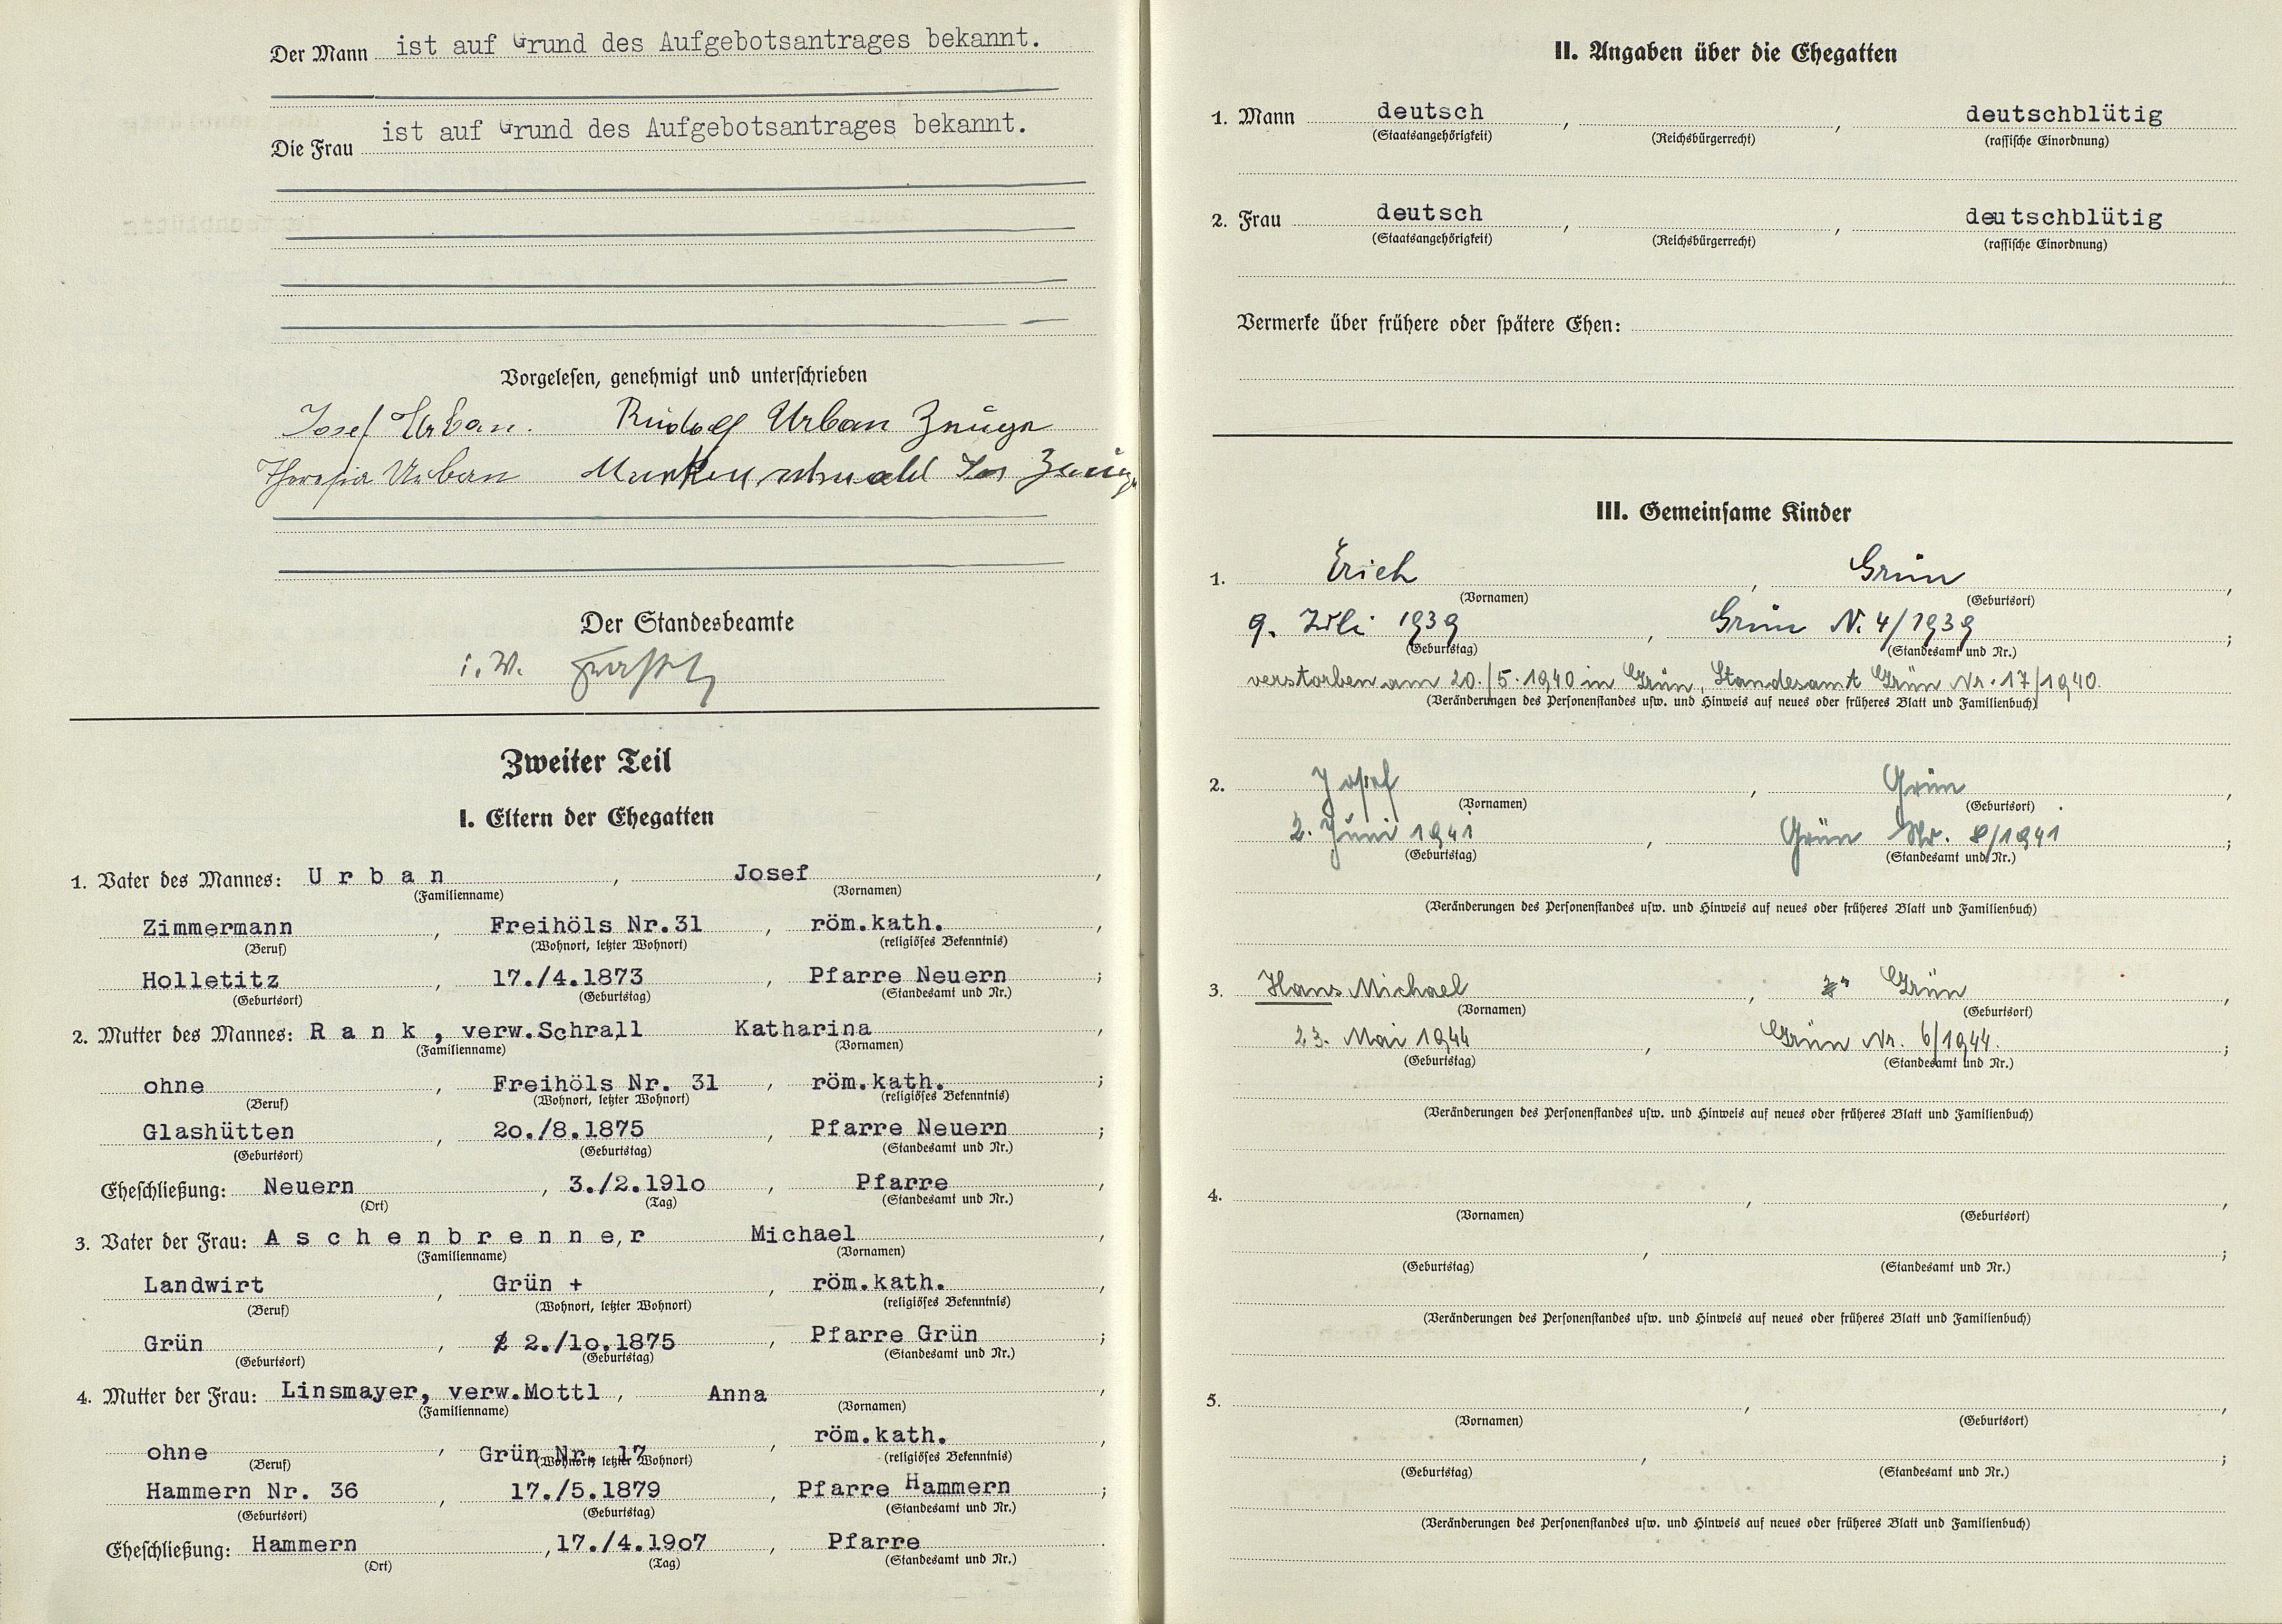 Der Mann ist auf Grund des Aufgebotsantrages bekannt.
Die Frau ist auf Grund des Aufgebotsantrages bekannt.
Vorgelesen, genehmigt und unterschrieben
Josef Urban. Rudolf Urban Zeuge
Theresia Urban Zeuge
Der Standesbeamte
i. V.
Zweiter Teil
I. Eltern der Ehegatten
1. Vater des Mannes: Urban, Josef,
(Familienname) (Vornamen)
Zimmermann, Freihöls Nr.31, röm.kath.,
(Beruf) (Wohnort, letzter Wohnort) (religiöses Bekenntnis)
Holletitz, 17./4.1873, Pfarre Neuern;
(Geburtsort) (Geburtstag) (Standesamt und Nr.)
2. Mutter des Mannes: Rank, verw.Schrall Katharina,
(Familienname) (Vornamen)
ohne, Freihöls Nr. 31, röm.kath.;
(Beruf) (Wohnort, letzter Wohnort) (religiöses Bekenntnis)
Glashütten, 2o./8.1875, Pfarre Neuern;
(Geburtsort) (Geburtstag) (Standesamt und Nr.)
Eheschließung: Neuern, 3./2.191o, Pfarre,
(Ort) (Tag) (Standesamt und Nr.)
3. Vater der Frau: Aschenbrenner, Michael,
(Familienname) (Vornamen)
Landwirt, Grün +, röm.kath.,
(Beruf) (Wohnort, letzter Wohnort) (religiöses Bekenntnis)
Grün, 2./1o.1875, Pfarre Grün;
(Geburtsort) (Geburtstag) (Standesamt und Nr.)
4. Mutter der Frau: Linsmayer, verw.Mottl, Anna,
(Familienname) (Vornamen)
ohne, Grün Nr. 17, röm.kath.,
(Beruf) (Wohnort, letzter Wohnort) (religiöses Bekenntnis)
Hammern Nr. 36, 17./5.1879, Pfarre Hammern;
(Geburtsort) (Geburtstag) (Standesamt und Nr.)
Eheschließung: Hammern, 17./4.19o7, Pfarre.
(Ort) (Tag) (Standesamt und Nr.)
II. Angaben über die Ehegatten
1. Mann deutsch, , deutschblütig
(Staatsangehörigkeit) (Reichsbürgerrecht) (rassische Einordnung)
2. Frau deutsch, , deutschblütig
(Staatsangehörigkeit) (Reichsbürgerrecht) (rassische Einordnung)
Vermerke über frühere oder spätere Ehen:
III. Gemeinsame Kinder
1. Erich, Grün,
(Vornamen) (Geburtsort)
9. Juli 1939, Grün N. 4/1939;
(Geburtstag) (Standesamt und Nr.)
verstorben am 20./5.1940 in Grün, Standesamt Grün Nr. 17/1940.
(Veränderungen des Personenstandes usw. und Hinweis auf neues oder früheres Blatt und Familienbuch)
2. Josef, Grün,
(Vornamen) (Geburtsort)
2. Juni 1941, Grün Nr. 8/1941;
(Geburtstag) (Standesamt und Nr.)
(Veränderungen des Personenstandes usw. und Hinweis auf neues oder früheres Blatt und Familienbuch)
3. Hans Michael, Grün,
(Vornamen) (Geburtsort)
23. Mai 1944, Grün Nr. 6/1944.;
(Geburtstag) (Standesamt und Nr.)
(Veränderungen des Personenstandes usw. und Hinweis auf neues oder früheres Blatt und Familienbuch)
4. , ,
(Vornamen) (Geburtsort)
, ;
(Geburtstag) (Standesamt und Nr.)
(Veränderungen des Personenstandes usw. und Hinweis auf neues oder früheres Blatt und Familienbuch)
5. , ,
(Vornamen) (Geburtsort)
, ;
(Geburtstag) (Standesamt und Nr.)
(Veränderungen des Personenstandes usw. und Hinweis auf neues oder früheres Blatt und Familienbuch)